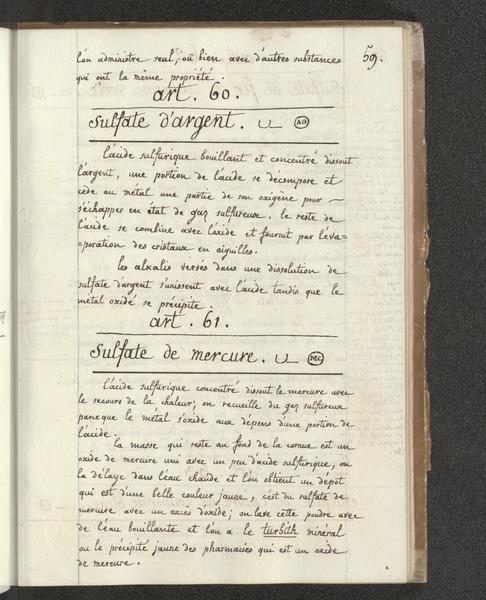 59.
l'on administre seul, ou bien avec d'autres substances
qui ont la même propriété.
art. 60.
Sulfate d'argent. AG
l'acide sulfurique bouillant et concentré dissout
l'argent, une portion de l'acide se décompose et
cède au métal une partie de son oxigène pour
s'échapper en état de gaz sulfureux. le reste de
l'acide se combine avec l'oxide et fournit par l'éva=
=poration des cristaux en aiguilles.
les alkalis versés dans une dissolution de
sulfate d'argent s'unissent avec l'acide tandis que le
métal oxidé se précipite.
art. 61.
Sulfate de mercure. MC
l'acide sulfurique concentré dissout le mercure avec
le secours de la chaleur; on recueille du gaz sulfureux
parceque le métal s'oxide aux dépens d'une portion de
l'acide.
la masse qui reste au fond de la cornue est un
oxide de mercure uni avec un peu d'acide sulfurique, on
la délaye dans l'eau chaude et l'on obtient un dépot
qui est d'une belle couleur jaune, c'est du sulfate de
mercure avec un excès d'oxide; on lave cette poudre avec
de l'eau bouillante et l'on a le turbith minéral
ou le précipité jaune des pharmacies qui est un oxide
de mercure.